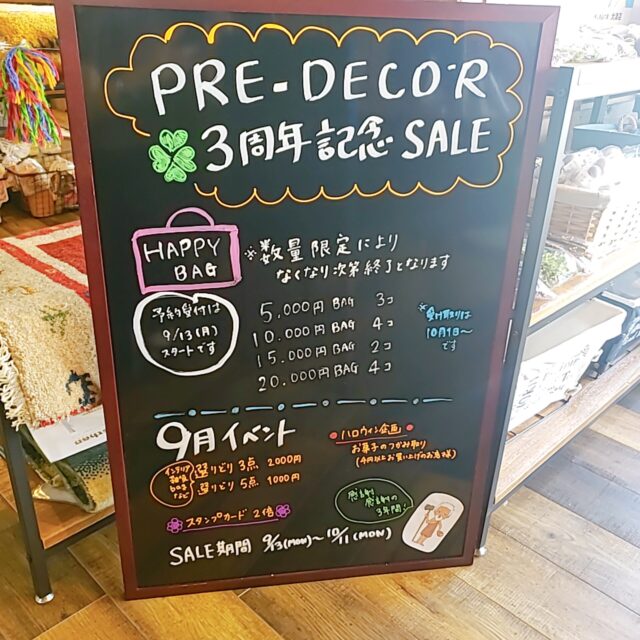 PRE-DECO'R
3周年記念 SALE
HAPPY
BAG
※数量限定により
なくなり次第終了となります
予約受付は
9/13(月)
スタートです
5.000円 BAG 3コ
10.000円 BAG 4コ
15.000円 BAG 2コ
20.000円 BAG 4コ
※受け取りは
10月1日〜
です
9月イベント
インテリア
雑貨
など
選りどり 3点 2000円
選りどり 5点 1000円
スタンプカード 2倍
ハロウィン企画
お菓子のつかみ取り
感謝
感謝の
3年間!
SALE期間 9/3(MON)〜10/11(MON)